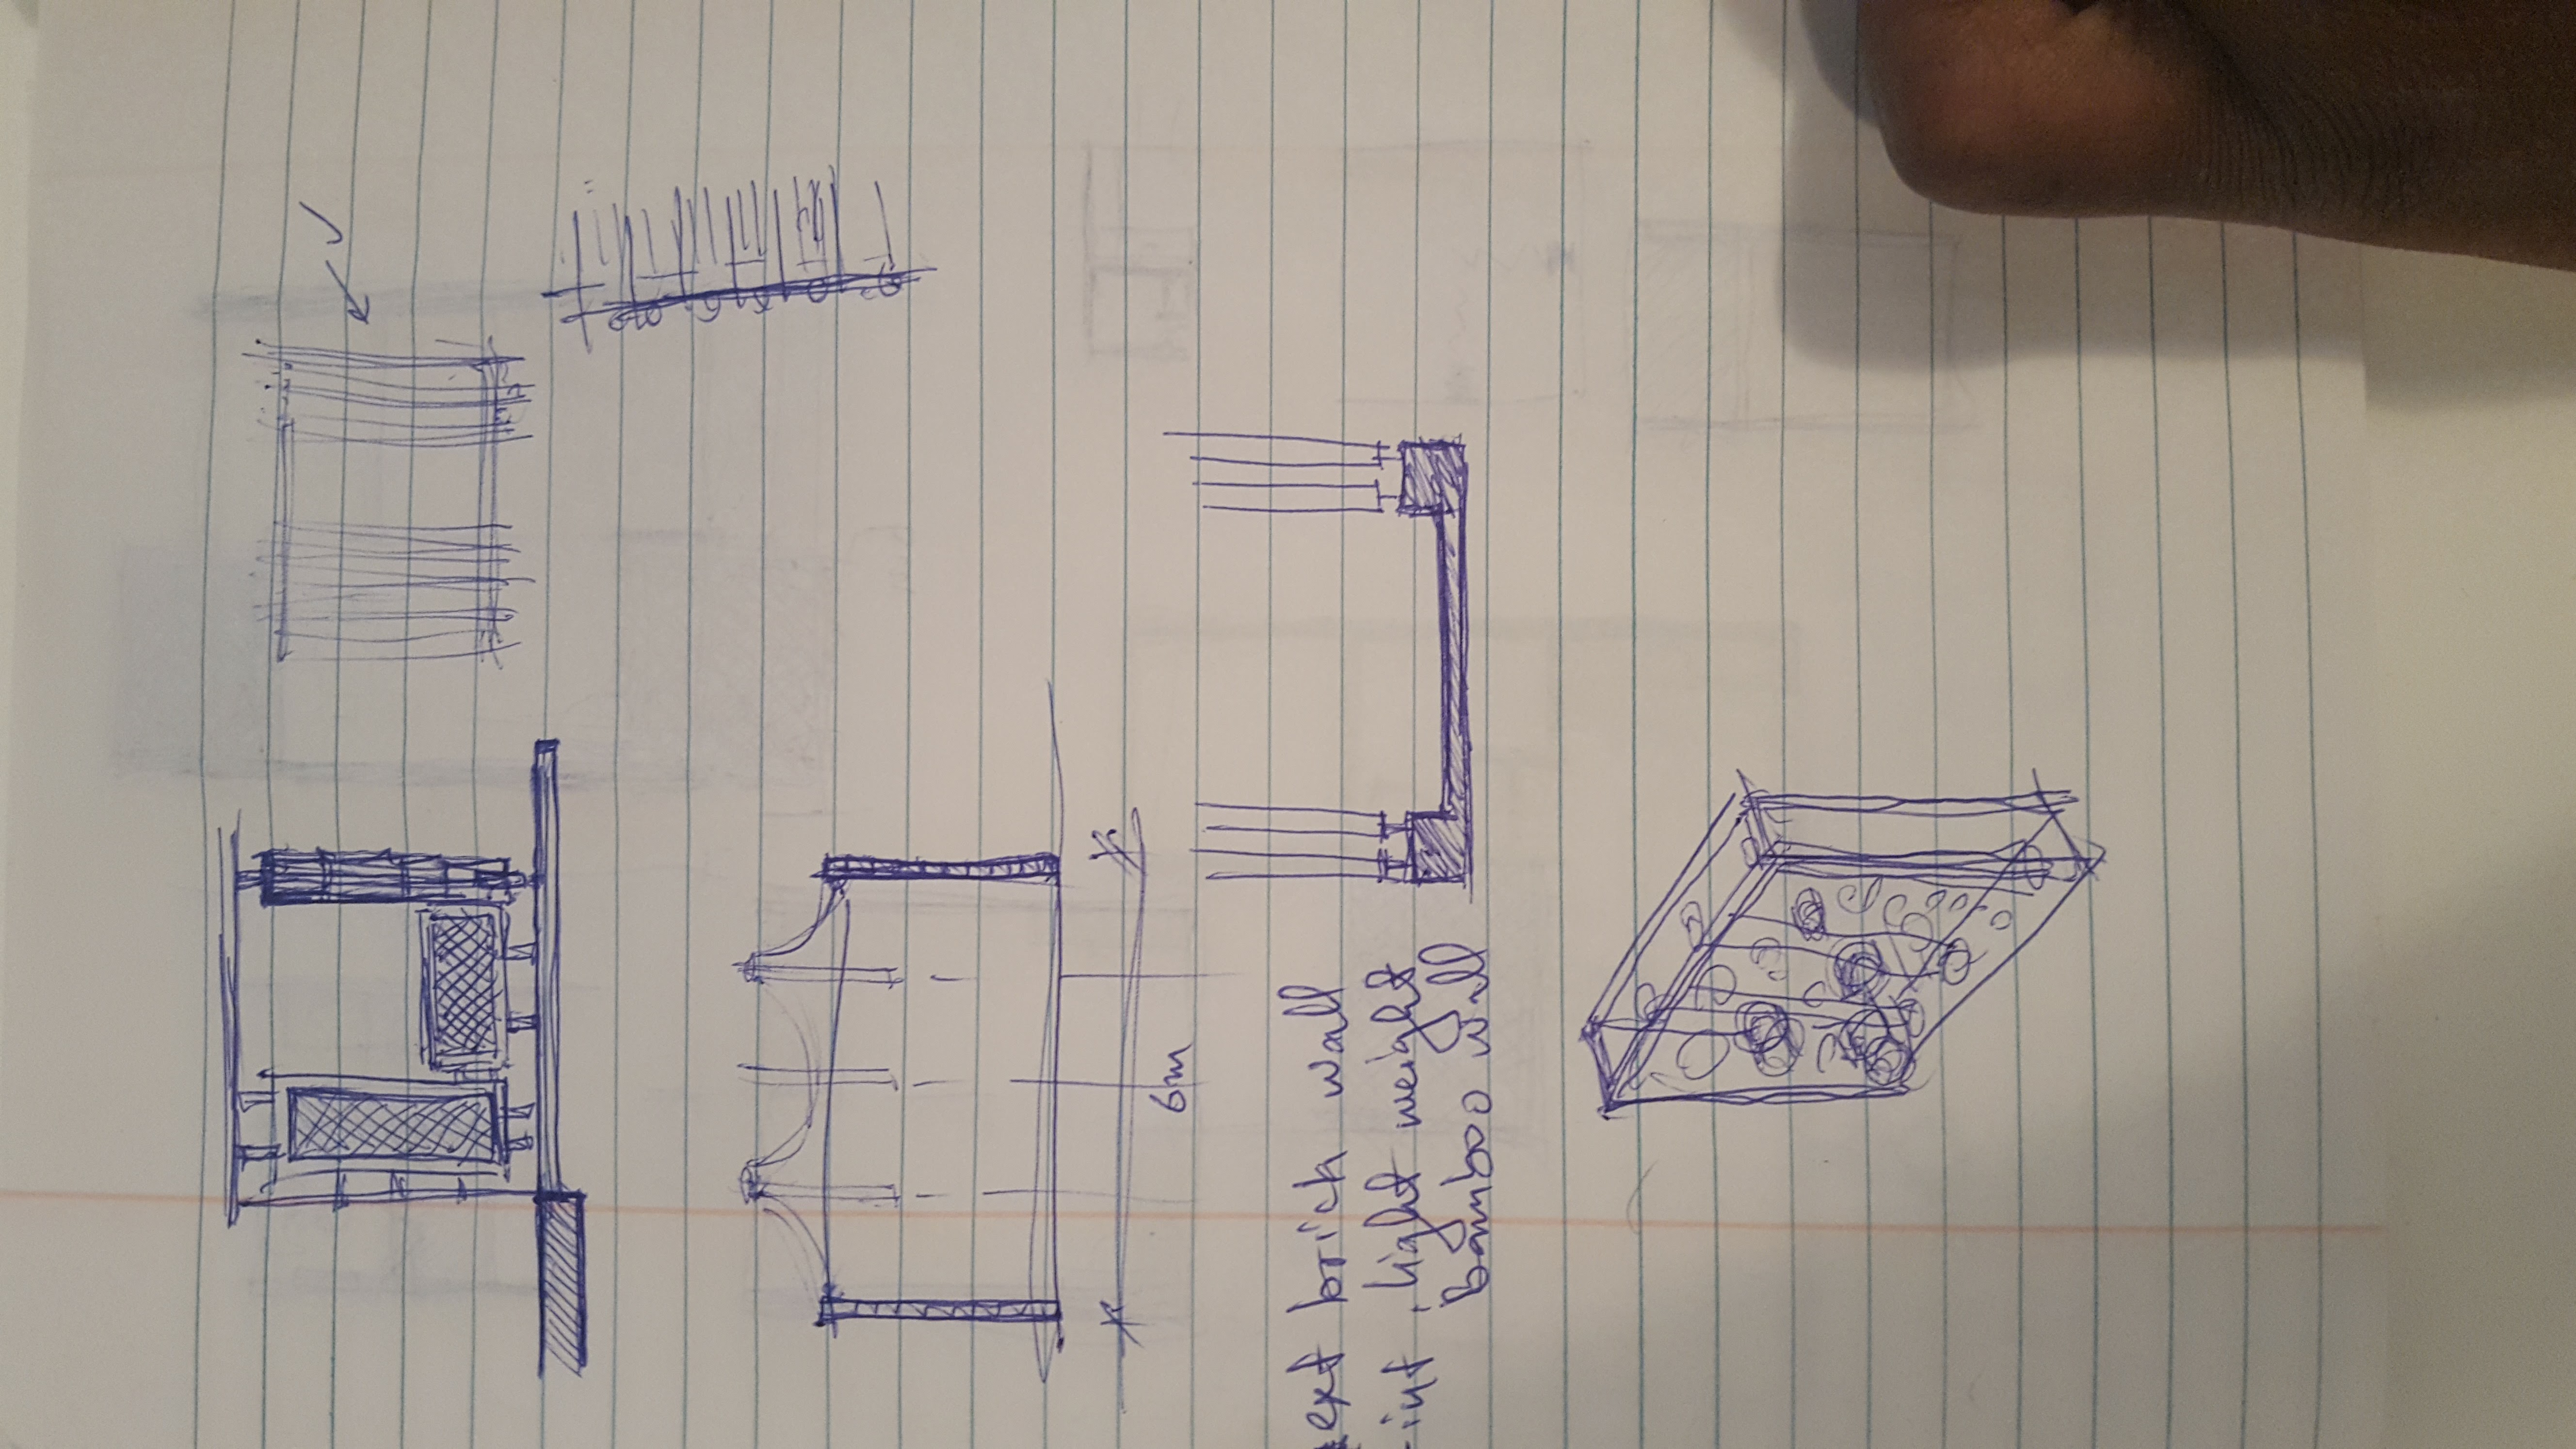 6m
- ext brick wall
- int. light weight
bamboo wall